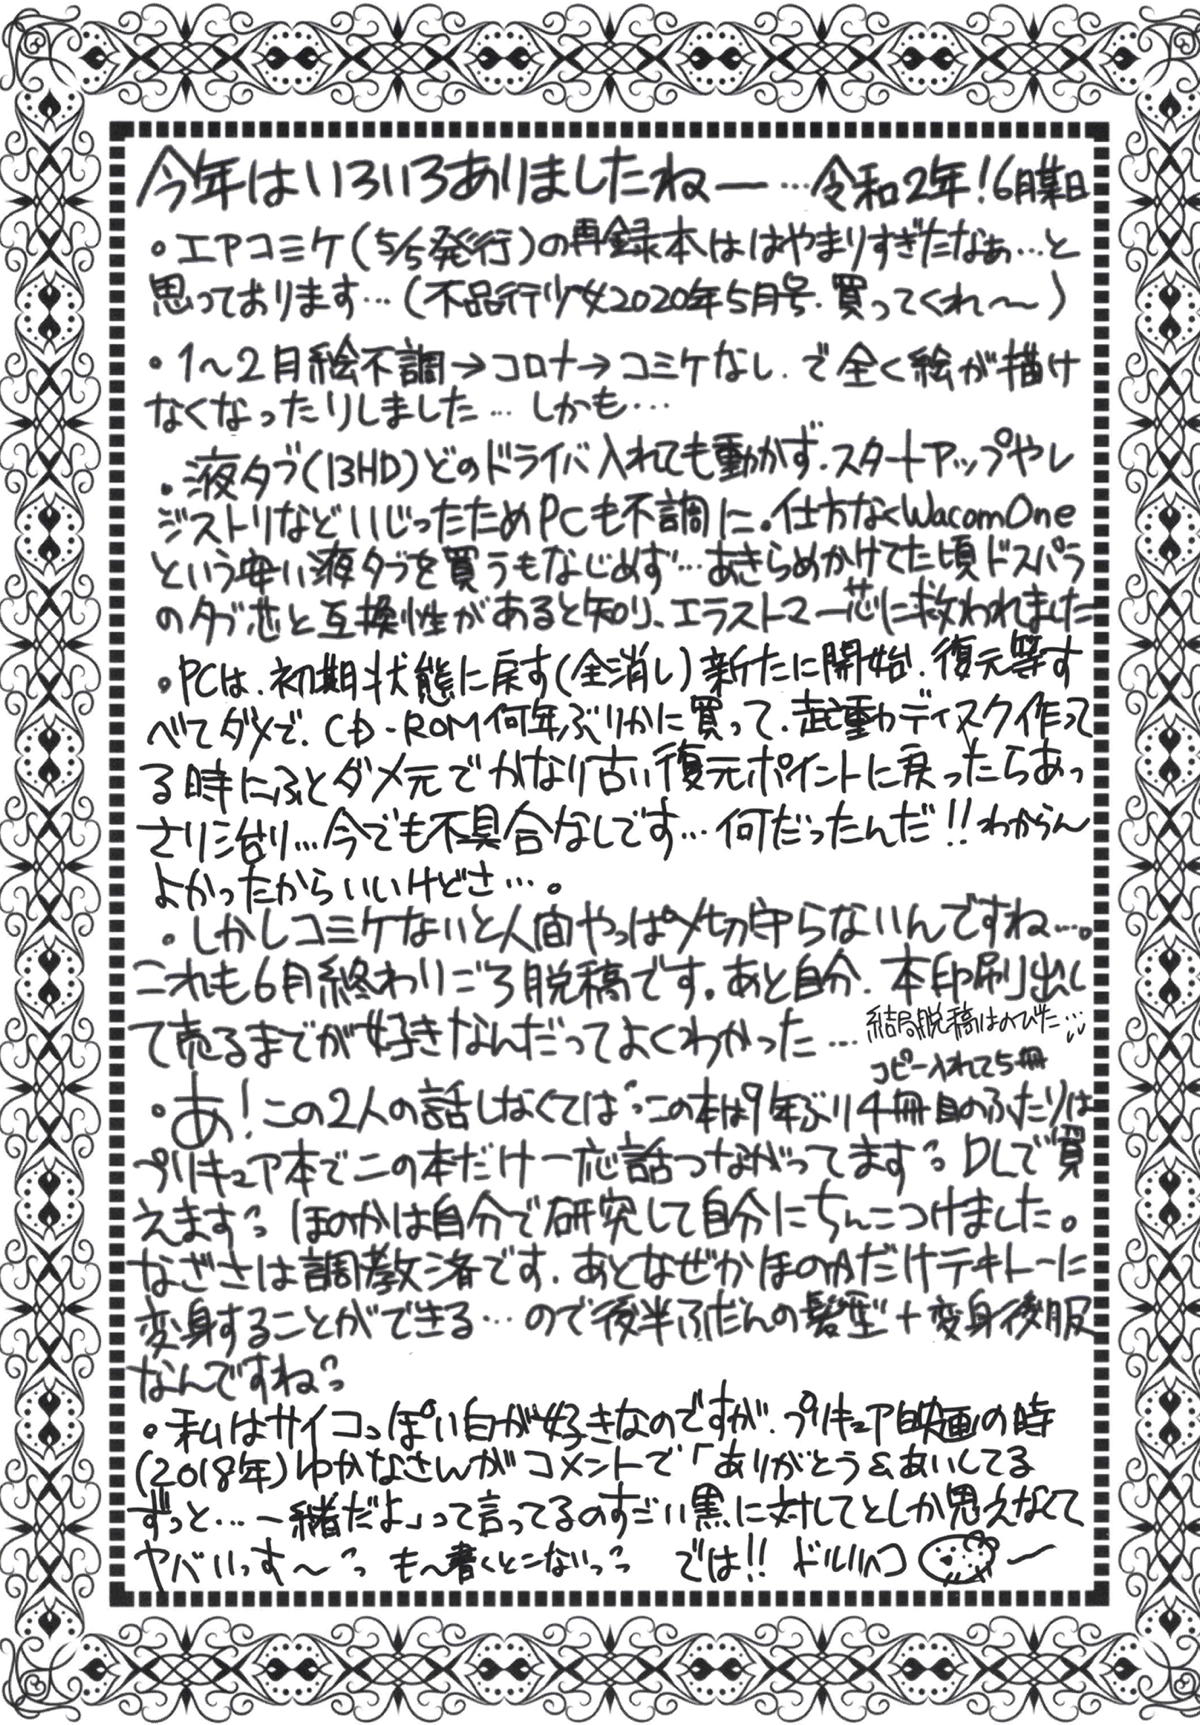 今年はいろいろありましたねー…令和2年!6月某日
・エアコミケ(5/5発行)の再録本ははやまりすぎたなぁ…と
思っております…(不品行少女2020年5月号.買ってくれ〜〜)
・1〜2月絵不調→コロナ→コミケなし.で全く絵が描け
なくなったりしました…しかも…
・液タブ(13HD)どのドライバ入れても動かず.スタートアップやレ
ジストリなどいじったためPCも不調に。仕方なくWacomOne
という安い液タブを買うもなじめず…あきらめかけてた頃ドスパラ
のタブ芯と互換性があると知り、エラストマー芯に救われました
・PCは、初期状態に戻す(全消し)新たに開始.復元等す
べてダメで、CD-ROM何年ぶりかに買って、起動ディスク作って
る時にふとダメ元でかなり古い復元ポイントに戻ったらあっ
さり治り…今でも不具合なしです…何だったんだ!!わからん
よかったからいいけどさ…。
・しかしコミケないと人間やっぱ〆切守らないんですね…。
これも6月終わりごろ脱稿です。あと自分.本印刷し出し
て売るまでが好きなんだってよくわかった…結局脱稿はのびた…
コピー入れて5冊
・あ!この2人の話しなくてはこの本は9年ぶり4冊目のふたりは
プリキュア本でこの本だけ一応話つながってますDLで買
えます ほのかは自分で研究して自分にちんこつけました。
なぎさは調教済です.あとなぜかほのかだけテキトーに
変身することができる…ので後半ふだんの髪型+変身後服
なんですね
・私はサイコっぽい白が好きなのですが.プリキュア映画の時
(2018年)ゆかなさんがコメントで「ありがとう&あいしてる
ずっと…一緒だよ」って言ってるのすごい黒に対してとしか思えなくて
ヤバいっす〜 も〜書くとこないっ では!! ドルリヘコ